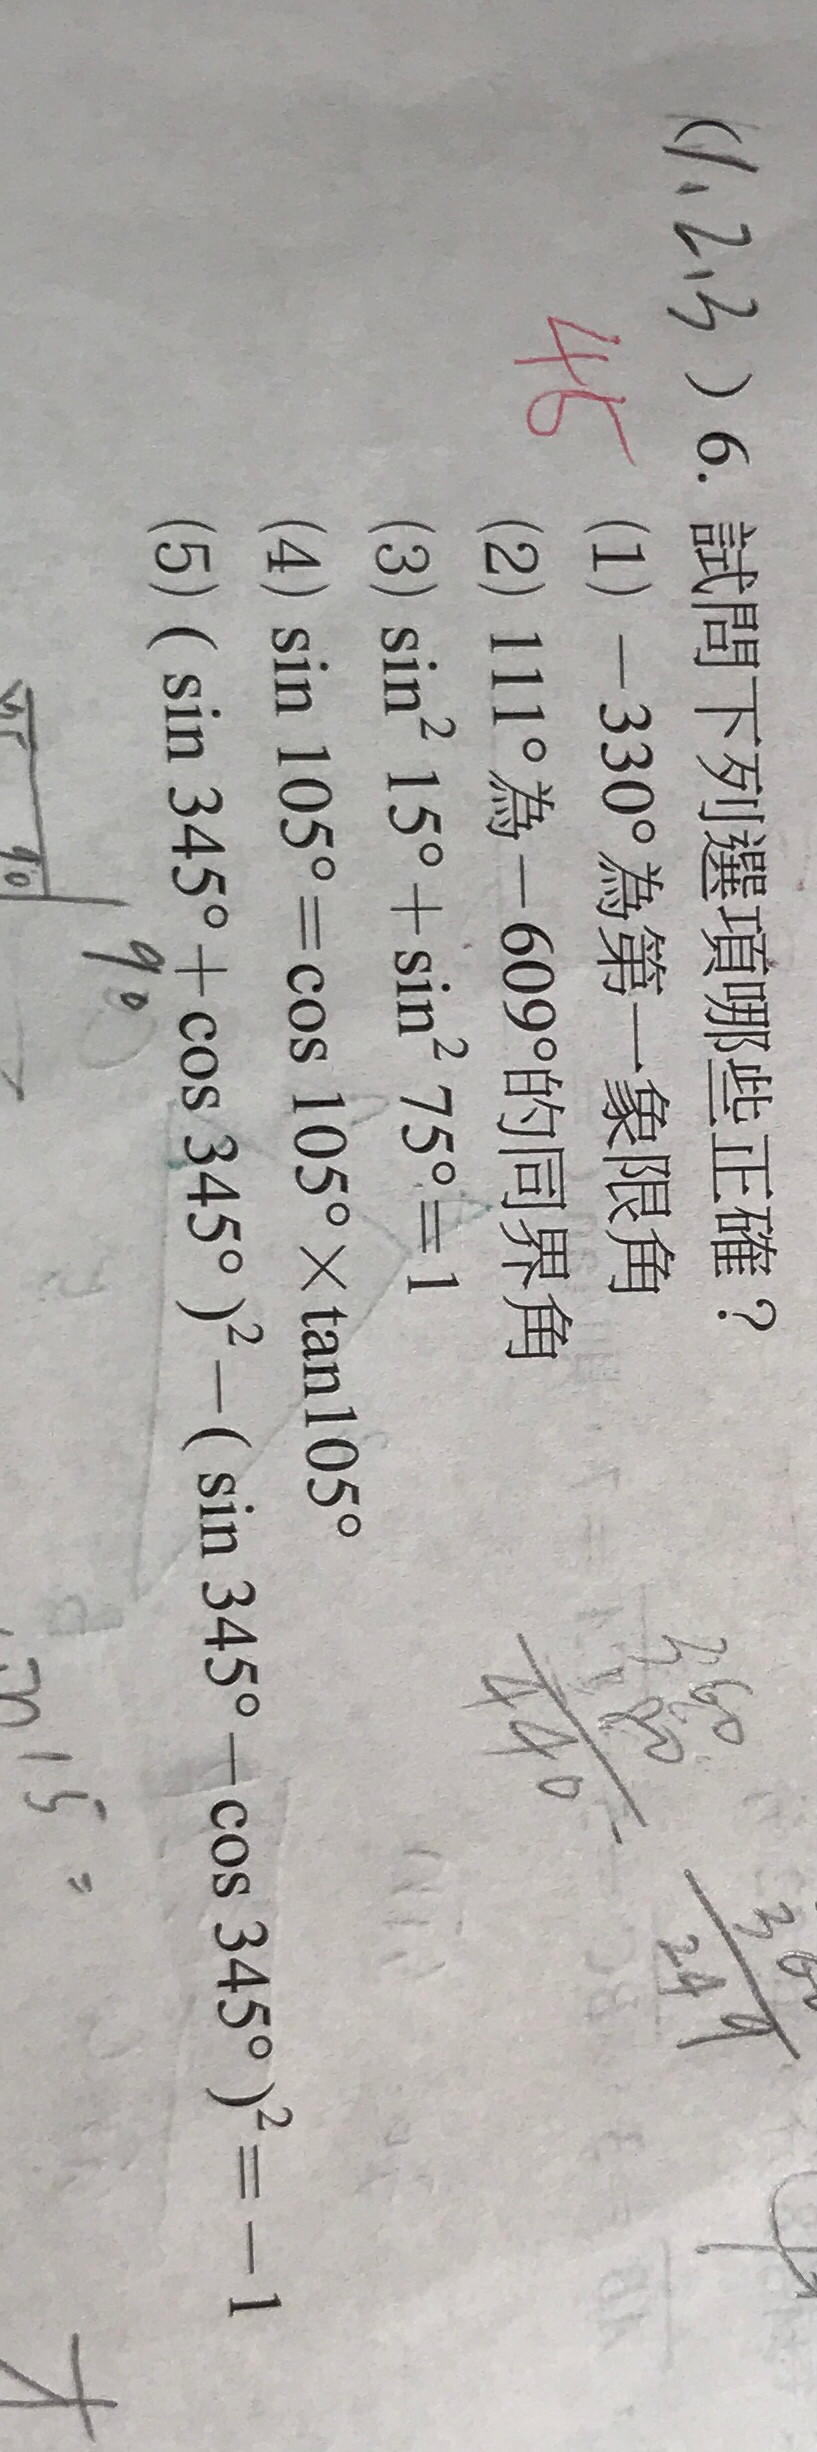 (1,2,3)6. 試問下列選項哪些正確？
45
(1) -330°為第一象限角
(2) 111°為-609°的同界角
(3) sin² 15°+sin² 75°=1
(4) sin 105°=cos 105°×tan105°
(5) ( sin 345°+cos 345° )²-( sin 345°-cos 345° )²=-1
360
440
360
249
90
90
15 =